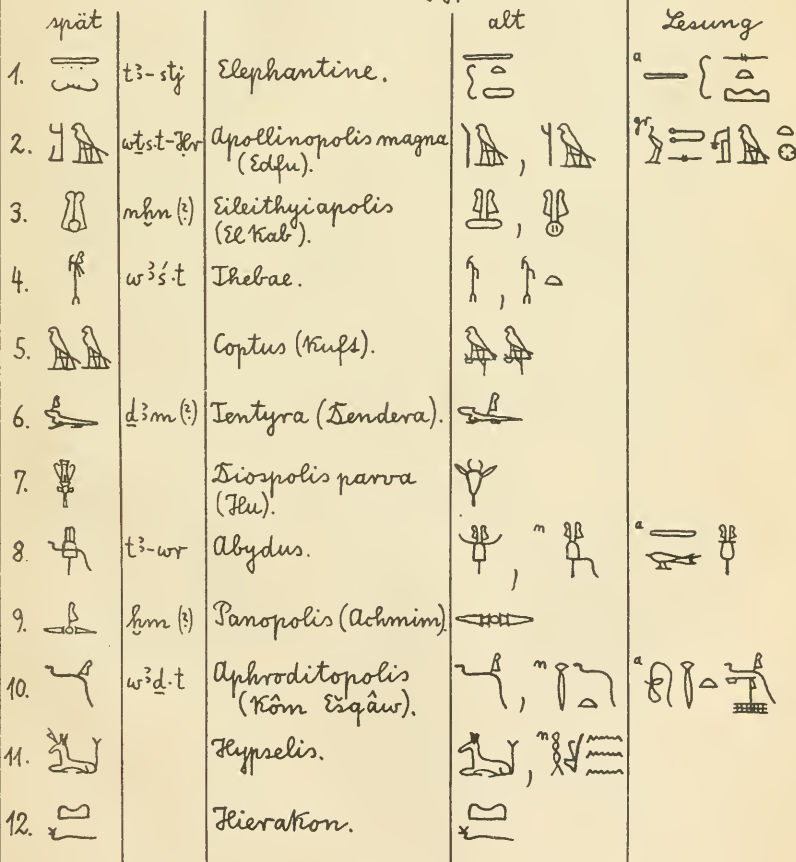 spät alt Lesung
1. tꜣ-stj Elephantine. a
2. wṯs.t-Ḥr Apollinopolis magna , gr
(Edfu).
3. nḫn (?) Eileithyiapolis ,
(El Kab).
4. wꜣś.t Thebae. ,
5. Coptus (Kuft).
6. ḏꜣm (?) Tentyra (Dendera).
7. Diospolis parva
(Hu).
8. tꜣ-wr Abydus. , n a
9. ḫm (?) Panopolis (Achmim)
10. wꜣḏ.t Aphroditopolis , n a
(Kôm Ešqâw).
11. Hypselis. , n
12. Hierakon.